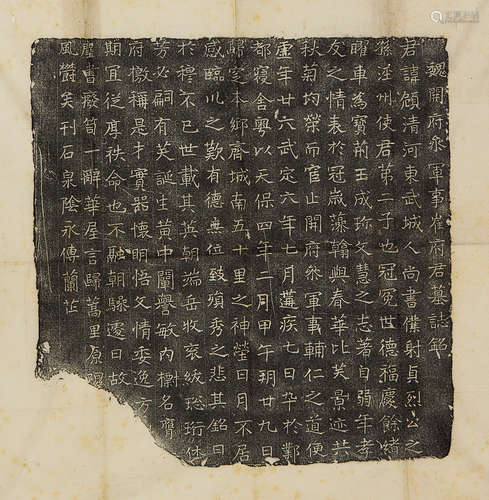 魏開府參軍事崔府君墓誌銘
君諱頠清河東武城人尚書僕射貞烈公之
孫涇州使君第一子也冠冕世德福慶餘緒
照車為寶前王成珎文慧之志著自弱年孝
友之情表於冠歲藻翰與春華比芺景迹共
秋菊均榮而官止開府參軍事輔仁之道便
虛年廿六武定六年七月遘疾七日卒於鄴
都寢舍粵以天保四年二月甲午玥廿九日
歸窆本鄉齊城南五十里之神塋日月不居
感臨川之歎有德無位致殞秀之悲其銘曰
於穆不已世載其英朝端岳牧袞紱珩
芳必嗣有芺誕生黃中闡譽敏內樹名膺
府檄稱是才實器懷明悟文情委逸方
期冝從厚秩命也不融朝驂遽日故
書廢笥一辭華屋言歸萬里原
風欝矣刊石泉陰永傳蘭芷